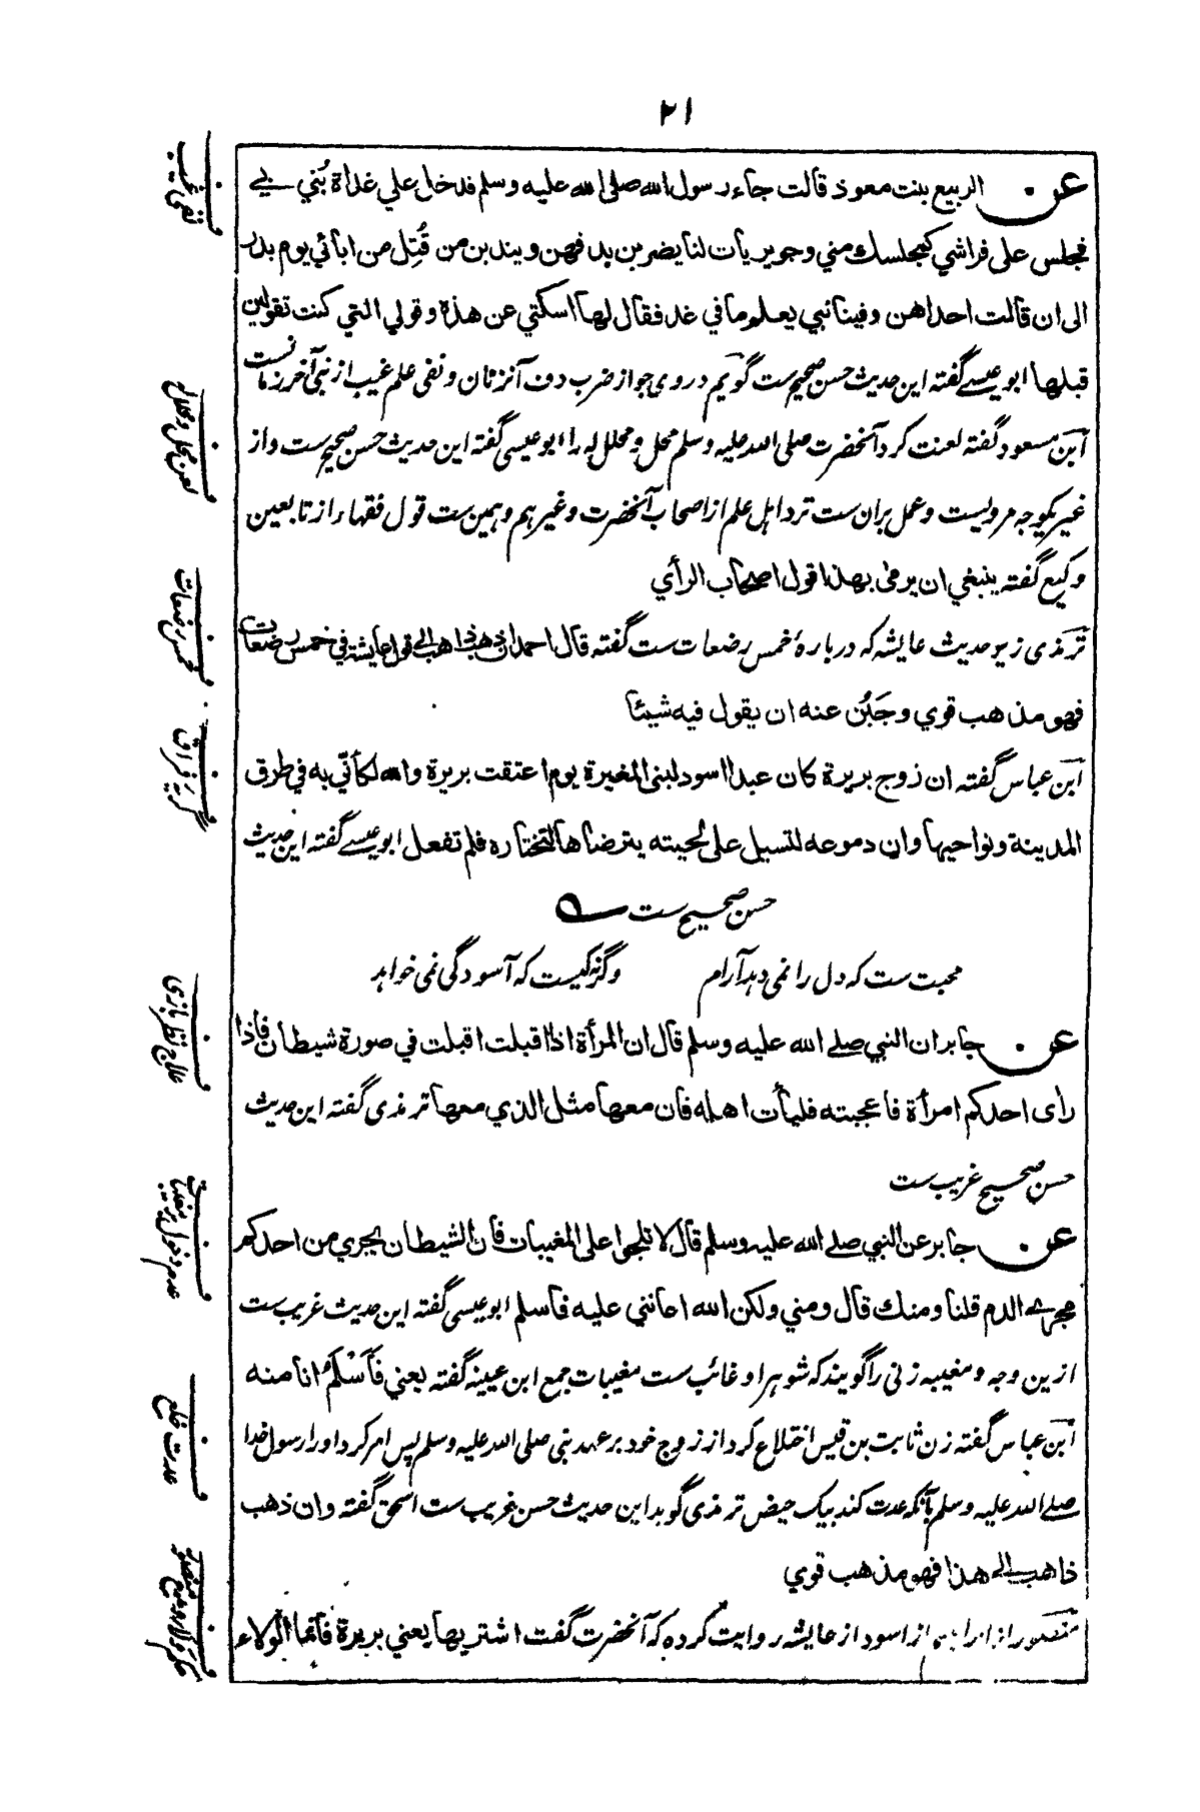 ۲۱
عن الربیع بنت معوذ قالت جاء رسول الله صلی الله علیه وسلم فدخل علي غداة بُني بي
فجلس علی فراشي کمجلسك مني وجویریات لنا یضربن بدفهن ویندبن من قُتِل من ابائي یوم بدر
الی ان قالت احداهن وفینا نبي یعلم ما في غد فقال لها اسکتي عن هذه وقولي التي کنت تقولین
قبلها ابو عیسے گفته این حدیث حسن صحیح ست گویم در وی جواز ضرب دف آنزنان و نفی علم غیب از نبی آخر زمانست
ابن مسعود گفته لعنت کرد آنحضرت صلی الله علیه وسلم محل و محلل له را ابو عیسی گفته این حدیث حسن صحیح ست و از
غیر یکوجه مرویست و عمل بران ست نزد اهل علم از اصحاب آنحضرت و غیرهم و همین ست قول فقهاء از تابعین
وکیع گفته ینبغي ان یرمی بهذا قول اصحاب الرأي
ترمذی زیر حدیث عایشه که دربارهٔ خمس رضعات ست گفته قال احمد ان ذهب ذاهب الی قول عایشة في خمس رضعات
فهو مذهب قوي وجَبُن عنه ان یقول فیه شیئا
ابن عباس گفته ان زوج بریرة کان عبدا اسود لبنی المغیرة یوم اعتقت بریرة والله لکأنّي به في طرق
المدینة ونواحیها وان دموعه لتسیل علی لحیته یترضاها لتختاره فلم تفعل ابو عیسے گفته این حدیث
حسن صحیح ست
محبت ست که دل را نمی دهد آرام وگرنه کیست که آسودگی نمی خواهد
عن جابر ان النبي صلے الله علیه وسلم قال ان المرأة اذا اقبلت اقبلت في صورة شیطان فاذا
رأی احدکم امرأة فاعجبته فلیأت اهله فان معها مثل الذي معها ترمذی گفته این حدیث
حسن صحیح غریب ست
عن جابر عن النبي صلے الله علیه وسلم قال لا تلجوا علی المغیبات فان الشیطان یجري من احدکم
مجری الدم قلنا ومنك قال ومني ولکن الله اعانني علیه فاسلم ابو عیسی گفته این حدیث غریب ست
ازین وجه و مغیبه زنی را گویند که شوهر او غائب ست مغیبات جمع ابن عیینه گفته یعني فَاَسْلَمُ انا منه
ابن عباس گفته زن ثابت بن قیس اختلاع کرد از زوج خود بر عهد نبی صلی الله علیه وسلم پس امر کرد او را رسول خدا
صلے الله علیه وسلم بآنکه عدت کند بیک حیض ترمذی گوید این حدیث حسن غریب ست اسحق گفته وان ذهب
ذاهب الی هذا فهو مذهب قوي
منصور از ابراهیم از اسود از عایشه روایت کرده که آنحضرت گفت اشتریها یعني بریرة فانما الولاء
نفی غیب
لعن محل و محلل له
خمس رضعات
گریه فراق
علاج نظر بازی
عدم دخول بر مغیبات
عدت خلع